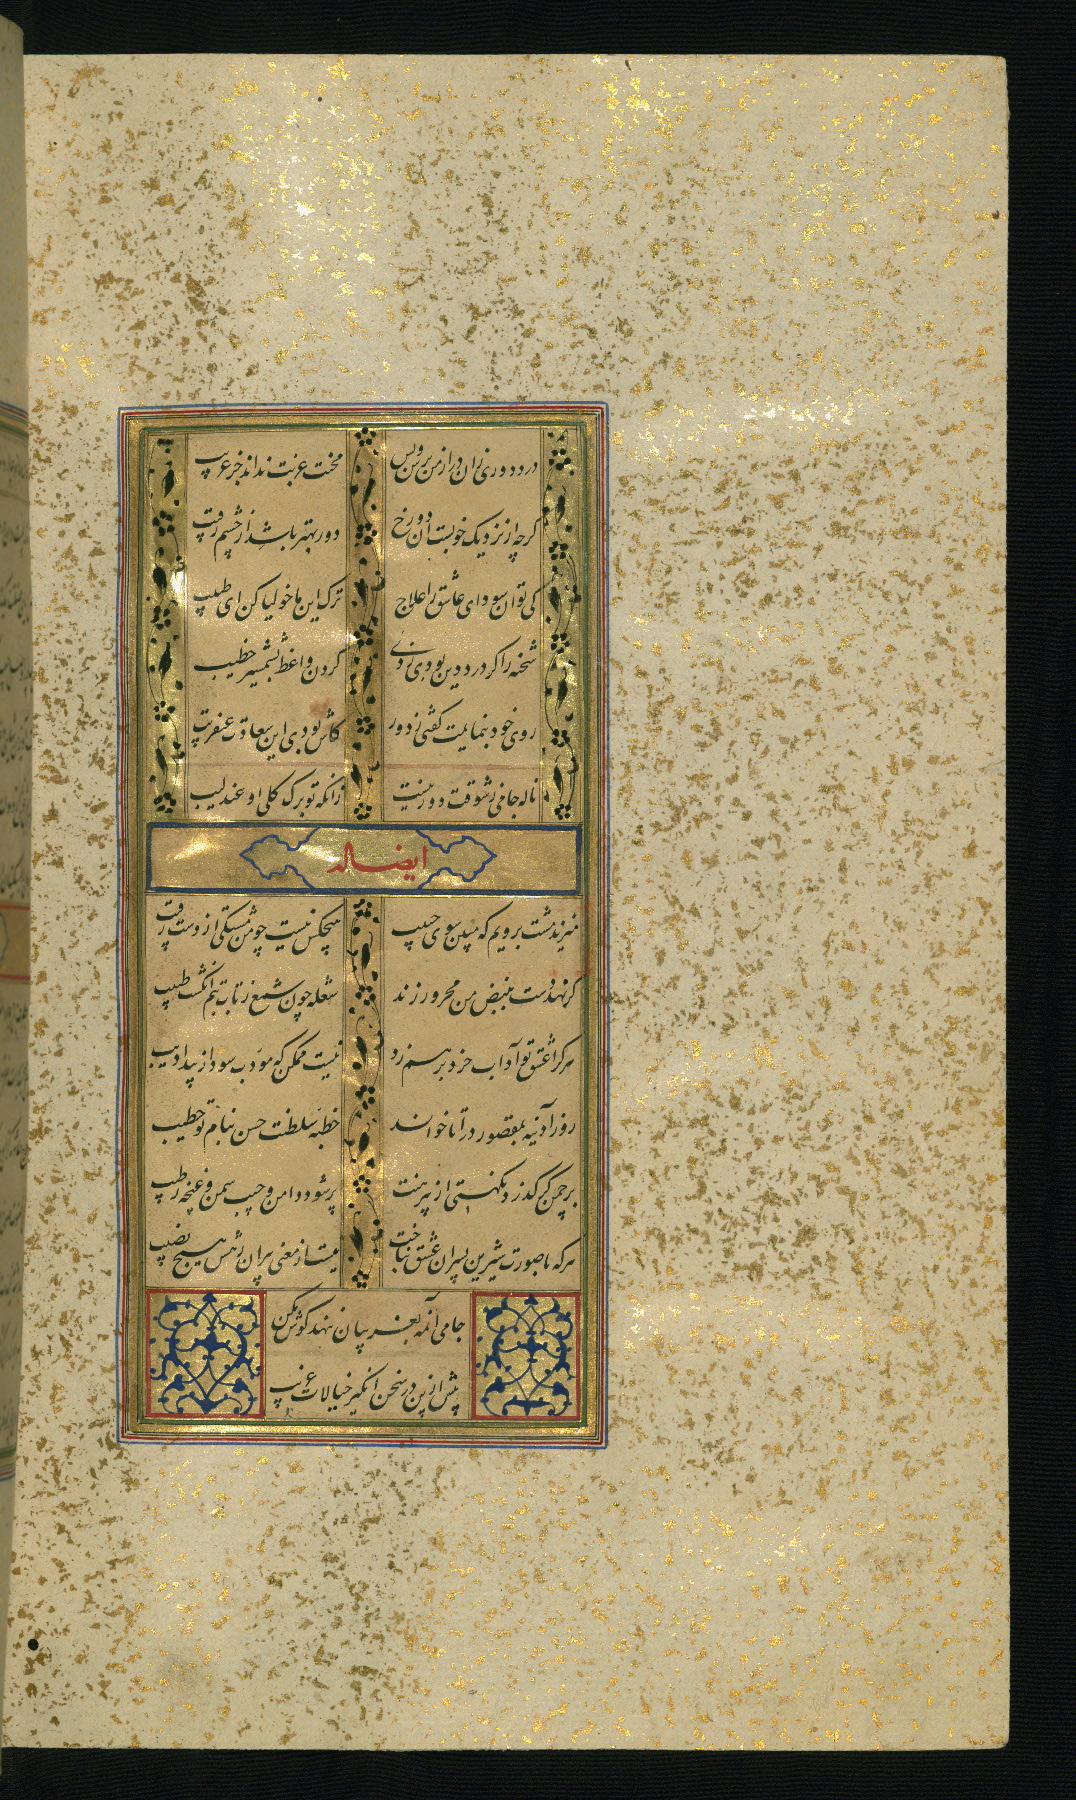 درد دوری زان دراز من پرس و بس محنت غربت نداند جز غریب
گرچه از نزدیک خوبست آن دو رخ دور بهتر باشد از چشم رقیب
کی توان سودای عاشق را علاج ترک این ماخولیا کن ای طبیب
شحنه را گر درد دین بودی زدی گردن واعظ بشمشیر خطیب
روی خود بنمایمت گفتی ز دور کاش بودی این سعادت عنقریب
ناله جامی ز شوقت دور نیست زانکه تو برگ گلی او عندلیب
ایضا له
میزند شت برویم که مبین سوی حبیب هیچکس نیست چو من شستکی از دست رقیب
گر نهد دست بنبض من محرور زند شعله چون شمع ز تاب تبم انگشت طبیب
هر کرا عشق تو آداب خرد بر هم زد نیست ممکن که مودب شود از پند ادیب
روز آدینه بمقصوره درآ تا خواند خطبه سلطنت حسن بنام تو خطیب
بر چمن گر گذرد نکهتی از پیرهنت پر شود دامن و جیب سمن و غنچه ز طیب
هر که با صورت شیرین پسران عشق نباخت نیست از معنی پیران رهش هیچ نصیب
جامی آنمه بغریبان ننهد گوش مکن
پیش ازین در سخن انگیز خیالات غریب